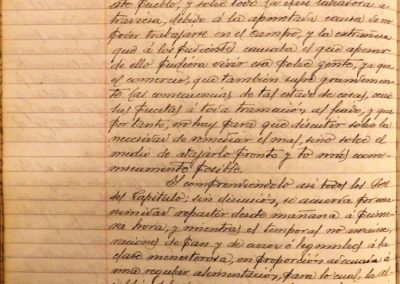 este pueblo, y sobre todo la clase labradora a
travesa, debido á la apuntada causa de no
poder trabajarse en el campo, y la extrañeza
que á los pudientes causaba el que apesar
de ello pudiera vivir esa pobre gente, ya que
el comercio, que también sufre grandemente
las consecuencias de tal estado de cosas, 
sus puertas á toda transacion, al fiado, y que
por tanto, no hay para que discutir sobre la
necesidad de remediar el mal, sino sobre el
medio de atajarlo pronto y lo más 
posible.
Y comprendiendolo asi todos los Sres
del Capitulo; sin discusion, se acuerda por una
nimidad repartir desde mañana á prime
ra hora, y mientras el temporal no 
raciones de pan y de arroz ó legumbres á la
clase menesterosa, en proporción adecuada á
una regular alimentación, para lo cual, la al